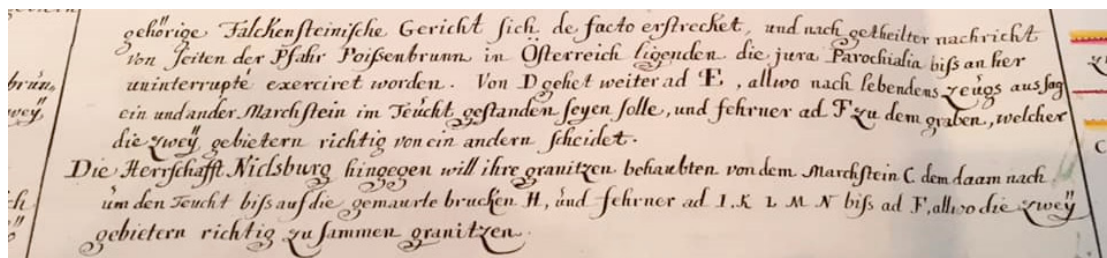 gehörige Falckensteinische Gericht sich de facto erstrecket, und nach getheilter nachricht
von seiten der Pfahr Poißenbrunn in Österreich ligenden die jura Parochialia biß an her
uninterrupté exerciret worden. Von D gehet weiter ad E, allwo nach lebendens zeügs aussag
ein und ander Marchstein im Teücht gestanden seyen solle, und fehrner ad F zu dem graben, welcher
die zweÿ gebietern richtig von ein andern scheidet.
Die Herrschafft Niclsburg hingegen will ihre granitzen behaubten von dem Marchstein C dem daam nach
üm den Teucht biß auf die gemaurte brucken H, und fehrner ad I. K L M N biß ad F, allwo die zweÿ
gebietern richtig zu sammen granitzen.